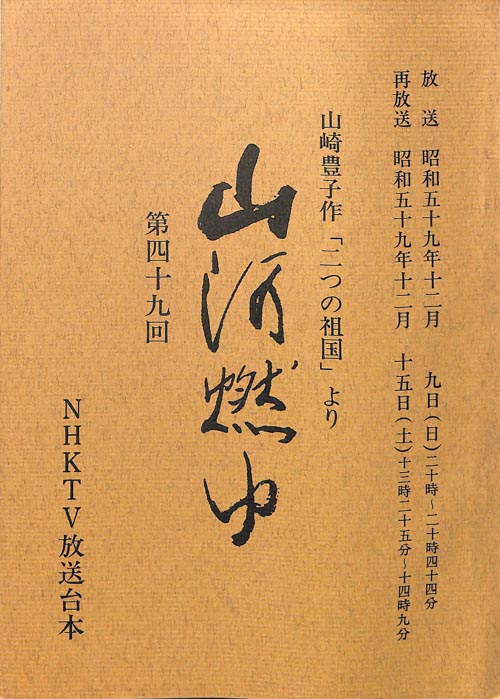 放　送　昭和五十九年十二月　九日(日)二十時～二十時四十四分
再放送　昭和五十九年十二月　十五日(土)十三時二十五分～十四時九分
山崎豊子作「二つの祖国」より
山河燃ゆ
第四十九回
NHKTV放送台本